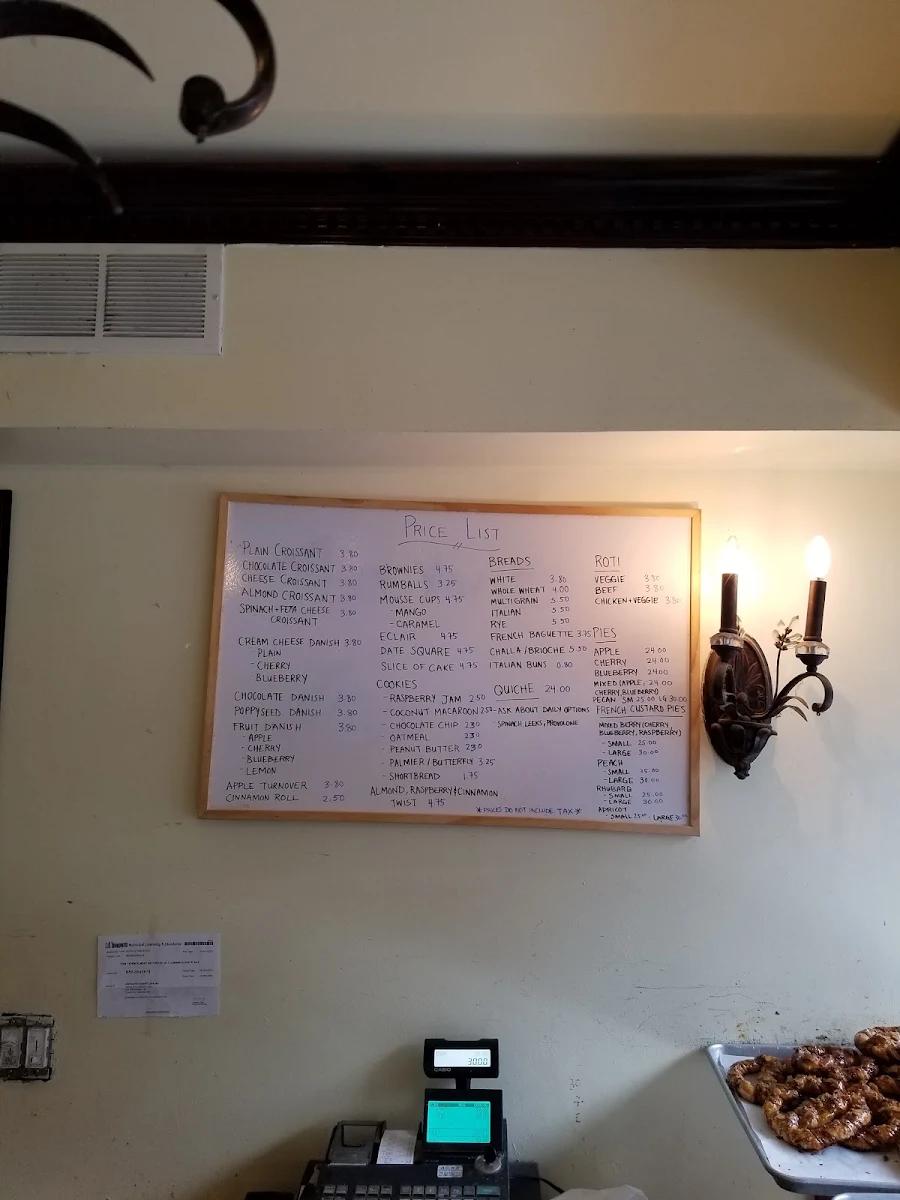 PRICE LIST
PLAIN CROISSANT 3.80
CHOCOLATE CROISSANT 3.80
CHEESE CROISSANT 3.80
ALMOND CROISSANT 3.80
SPINACH + FETA CHEESE 3.80
CROISSANT
CREAM CHEESE DANISH 3.80
- PLAIN
- CHERRY
BLUEBERRY
CHOCOLATE DANISH 3.80
POPPYSEED DANISH 3.80
FRUIT DANISH 3.80
- APPLE
- CHERRY
- BLUEBERRY
- LEMON
APPLE TURNOVER 3.80
CINNAMON ROLL 2.50
BROWNIES 4.75
RUMBALLS 3.25
MOUSSE CUPS 4.75
- MANGO
- CARAMEL
ECLAIR 4.75
DATE SQUARE 4.75
SLICE OF CAKE 4.75
COOKIES
- RASPBERRY JAM 2.50
- COCONUT MACAROON 2.50
- CHOCOLATE CHIP 2.30
- OATMEAL 2.30
- PEANUT BUTTER 2.30
- PALMIER / BUTTERFLY 3.25
- SHORTBREAD 1.75
ALMOND, RASPBERRY + CINNAMON
TWIST 4.75
BREADS
WHITE 3.80
WHOLE WHEAT 4.00
MULTIGRAIN 5.50
ITALIAN 5.50
RYE 5.50
FRENCH BAGUETTE 3.75
CHALLA / BRIOCHE 5.50
ITALIAN BUNS 0.80
QUICHE 24.00
- ASK ABOUT DAILY OPTIONS
- SPINACH, LEEKS, PROVOLONE
* PRICES DO NOT INCLUDE TAX *
ROTI
VEGGIE 3.80
BEEF 3.80
CHICKEN + VEGGIE 3.80
PIES
APPLE 24.00
CHERRY 24.00
BLUEBERRY 24.00
MIXED (APPLE, 24.00
CHERRY, BLUEBERRY)
PECAN SM 25.00 LG 30.00
FRENCH CUSTARD PIES
MIXED BERRY (CHERRY,
BLUEBERRY, RASPBERRY)
- SMALL 25.00
- LARGE 30.00
PEACH
- SMALL 25.00
- LARGE 30.00
RHUBARB
- SMALL 25.00
- LARGE 30.00
APRICOT
- SMALL 25.00 - LARGE 30.00
TORONTO
30.00
CASIO